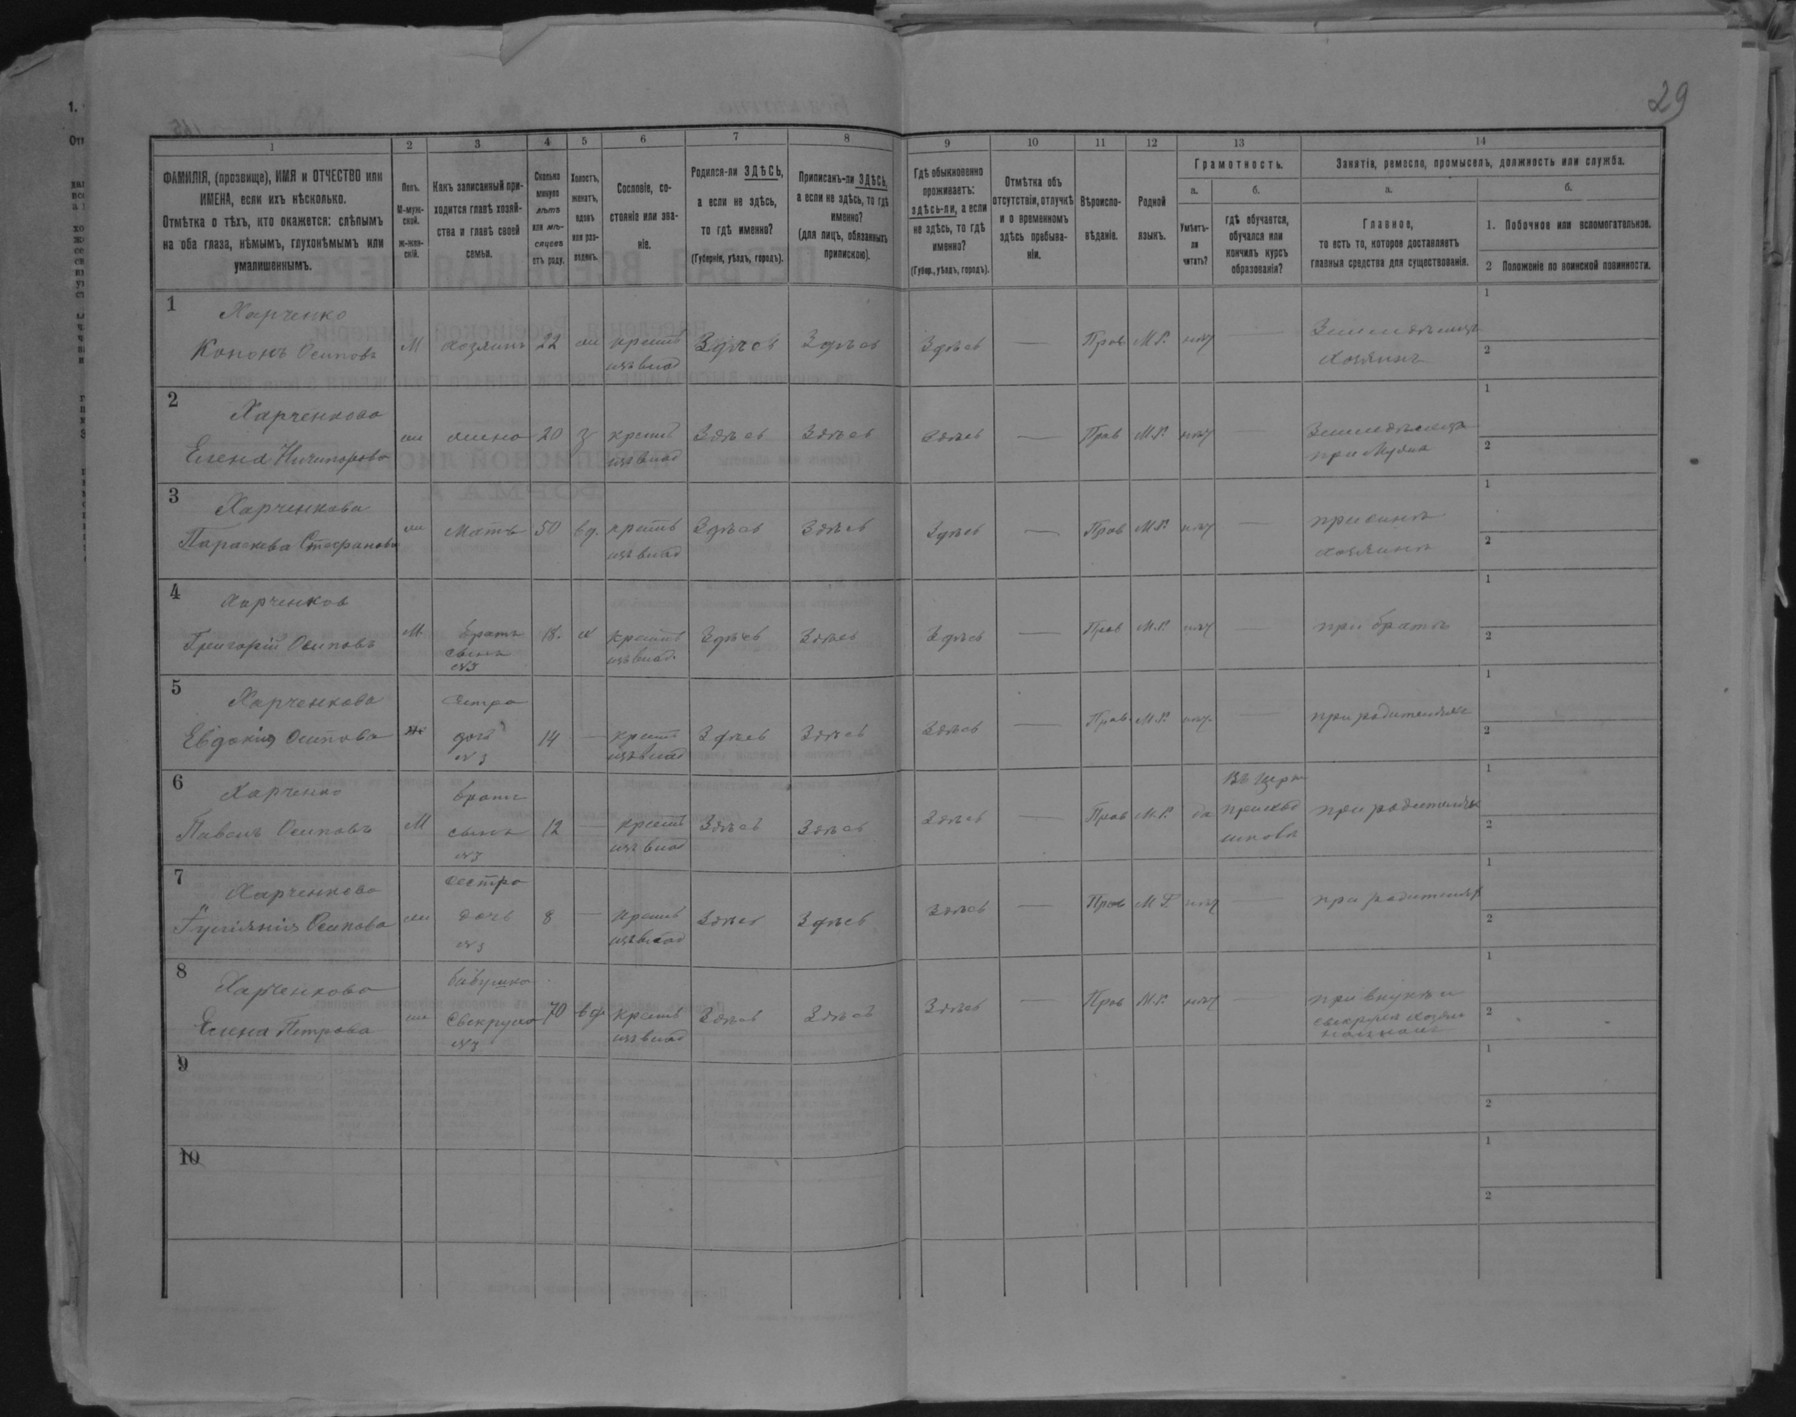 29
1 2 3 4 5 6 7 8 9 10 11 12 13 14
ФАМИЛІЯ, (прозвище), ИМЯ и ОТЧЕСТВО или
ИМЕНА, если ихъ нѣсколько.
Отмѣтка о тѣхъ, кто окажется: слѣпымъ
на оба глаза, нѣмымъ, глухонѣмымъ или
умалишеннымъ.
Полъ.
М-муж-
ской.
ж-жен-
скій.
Какъ записанный при-
ходится главѣ хозяй-
ства и главѣ своей
семьи.
Сколько
минуло
лѣтъ
или мѣ-
сяцевъ
отъ роду.
Холостъ,
женатъ,
вдовъ
или раз-
веденъ.
Сословіе, со-
стояніе или зва-
ніе.
Родился-ли ЗДѢСЬ,
а если не здѣсь,
то гдѣ именно?
(Губернія, уѣздъ, городъ).
Приписанъ-ли ЗДѢСЬ,
а если не здѣсь, то гдѣ
именно?
(для лицъ, обязанныхъ
припискою).
Гдѣ обыкновенно
проживаетъ:
здѣсь-ли, а если
не здѣсь, то гдѣ
именно?
(Губер., уѣздъ, городъ).
Отмѣтка объ
отсутствіи, отлучкѣ
и о временномъ
здѣсь пребыва-
ніи.
Вѣроиспо-
вѣданіе.
Родной
языкъ.
Грамотность.
а.
Умѣетъ-
ли
читать?
б.
гдѣ обучается,
обучался или
кончилъ курсъ
образованія?
Занятія, ремесло, промыселъ, должность или служба.
а.
Главное,
то есть то, которое доставляетъ
главныя средства для существованія.
б.
1. Побочное или вспомогательное.
2 Положеніе по воинской повинности.
1
Харченко
Кононъ Осиповъ М хозяинъ 22 крест Здѣсь Здѣсь Здѣсь — Прав М.Р. нѣт — Земледѣлецъ
хозяинъ
1
2
2
Харченкова
Елена Ничипорова жена 20 крест Здѣсь Здѣсь Здѣсь — Прав М.Р. нѣт Земледѣлецъ
при мужѣ
1
2
3
Харченкова
Параскева Стефанова мать 50 вд. крест Здѣсь Здѣсь Здѣсь — Прав М.Р. нѣт — при сынѣ
хозяинѣ
1
2
4
Харченков
Григорій Осиповъ М. братъ 18. крест Здѣсь Здѣсь Здѣсь — Прав М.Р. нѣт — при братѣ
сынъ
№3
1
2
5
Харченкова сестра
Евдокия Осипова дочь 14 — крест Здѣсь Здѣсь Здѣсь — Прав. М.Р. нѣт. — при родителяхъ
№3
1
2
6
Харченко братъ Въ церк
Павелъ Осиповъ М сынъ 12 — крест Здѣсь Здѣсь Здѣсь — Прав М.Р. да приход при родителяхъ
№3 школѣ
1
2
7
Харченкова сестра
Осипова дочь 8 — крест Здѣсь Здѣсь Здѣсь — Прав М.Р. нѣт — при родителях
№3
1
2
8
Харченкова бабушка
Елена Петрова свекруха 70 вд крест Здѣсь Здѣсь Здѣсь — Прав М.Р. нѣт — при внукѣ и
№3
1
2
9
1
2
10
1
2